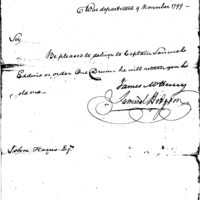 War department 9 November 1799 —
Sir
Be pleased to deliver to Captain Samuel
Eddins or order One Drum he will return you his
old one.
James McHenry
Samuel Hodgdon
John Harris Esqr.